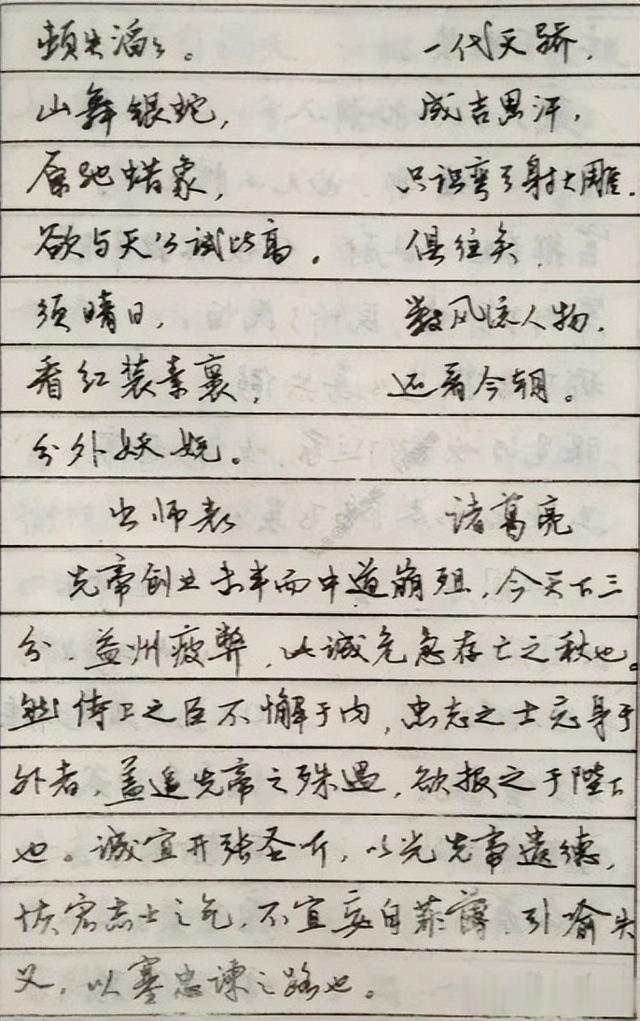 顿失滔々。
山舞银蛇，
原驰蜡象，
欲与天公试比高。
须晴日，
看红装素裹，
分外妖娆。
一代天骄，
成吉思汗，
只识弯弓射大雕．
俱往矣，
数风流人物，
还看今朝。
出师表 诸葛亮
先帝创业未半而中道崩殂，今天下三
分．益州疲弊，此诚危急存亡之秋也。
然侍卫之臣不懈于内，忠志之士忘身于
外者，盖追先帝之殊遇，欲报之于陛下
也。诚宜开张圣听，以光先帝遗德，
恢宏志士之气，不宜妄自菲薄，引喻失
义，以塞忠谏之路也。